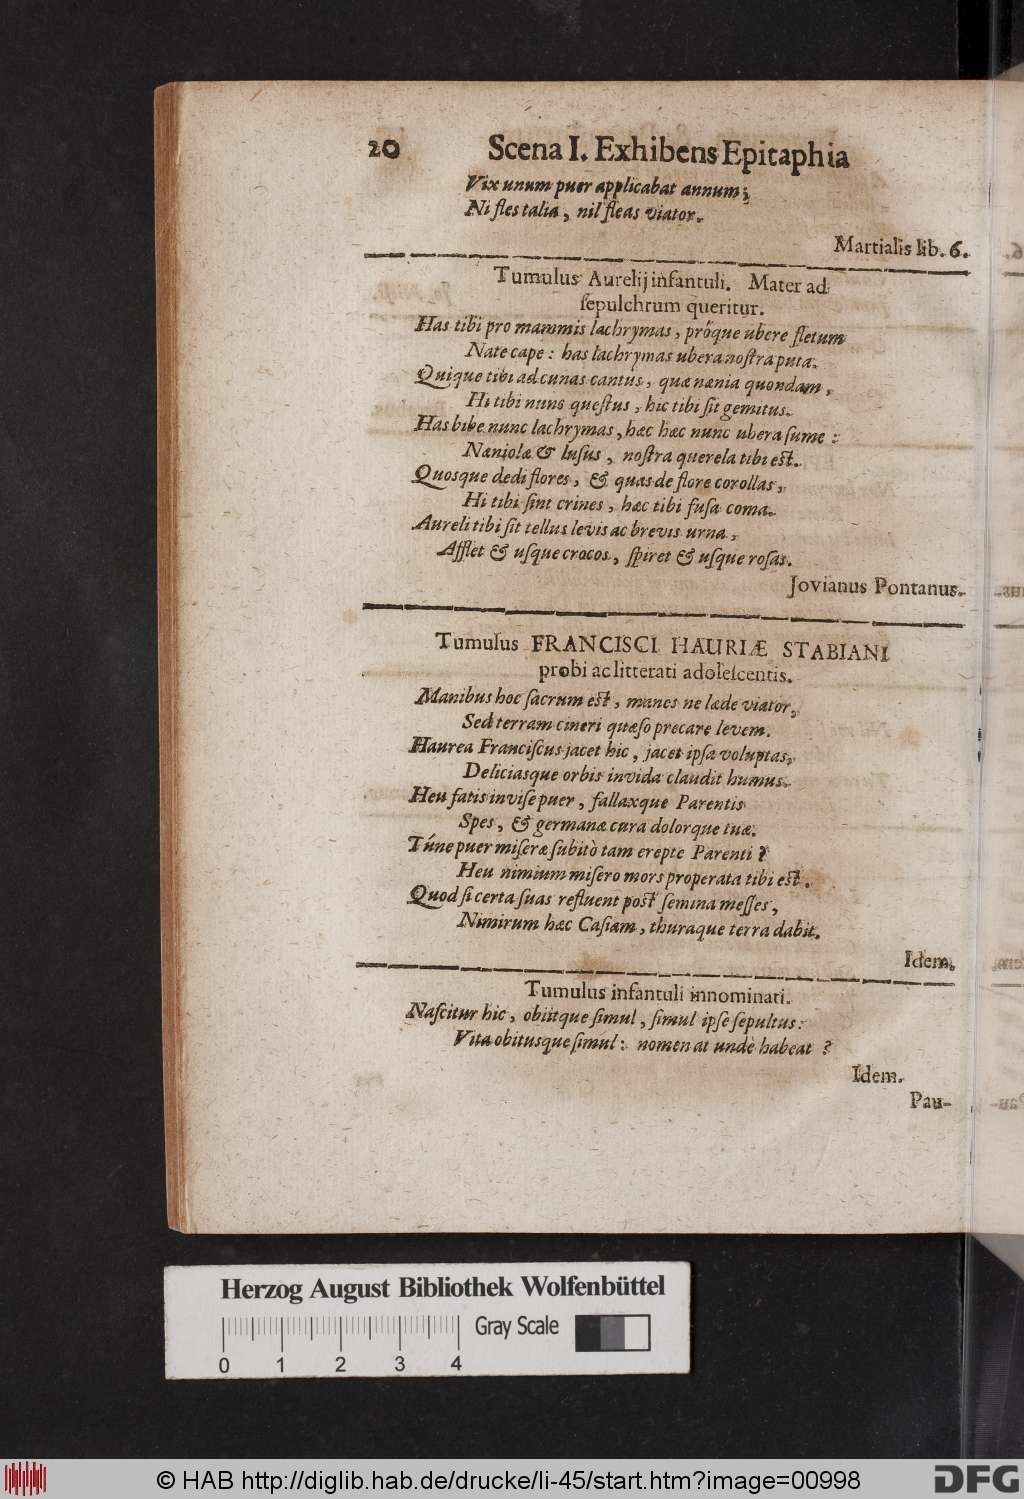 20 Scena I. Exhibens Epitaphia
Vix unum puer applicabat annum;
Ni fles talia, nil fleas viator.
Martialis lib. 6.
Tumulus Aurelij infantuli. Mater ad
sepulchrum queritur.
Has tibi pro mammis lachrymas, próque ubere fletum
Nate cape: has lachrymas ubera nostra puta.
Quique tibi ad cunas cantus, quæ nænia quondam,
Hi tibi nunc questus, hic tibi sit gemitus.
Has bibe nunc lachrymas, hæc hæc nunc ubera sume:
Næniolæ & lusus, nostra querela tibi est.
Quosque dedi flores, & quas de flore corollas,
Hi tibi sint crines, hæc tibi fusa coma.
Aureli tibi sit tellus levis ac brevis urna,
Afflet & usque crocos, spiret & usque rosas.
Jovianus Pontanus.
Tumulus FRANCISCI HAURIÆ STABIANI
probi ac litterati adolescentis.
Manibus hoc sacrum est, manes ne læde viator,
Sed terram cineri quæso precare levem.
Haurea Franciscus jacet hic, jacet ipsa voluptas,
Deliciasque orbis invida claudit humus.
Heu fatis invise puer, fallaxque Parentis
Spes, & germanæ cura dolorque tuæ.
Túne puer miseræ subitò tam erepte Parenti?
Heu nimium misero mors properata tibi est.
Quod si certa suas refluent post semina messes,
Nimirum hæc Casiam, thuraque terra dabit.
Idem.
Tumulus infantuli innominati.
Nascitur hic, obiitque simul, simul ipse sepultus:
Vita obitusque simul: nomen at undè habeat?
Idem.
Pau-
Herzog August Bibliothek Wolfenbüttel
Gray Scale
0 1 2 3 4
© HAB http://diglib.hab.de/drucke/li-45/start.htm?image=00998
DFG